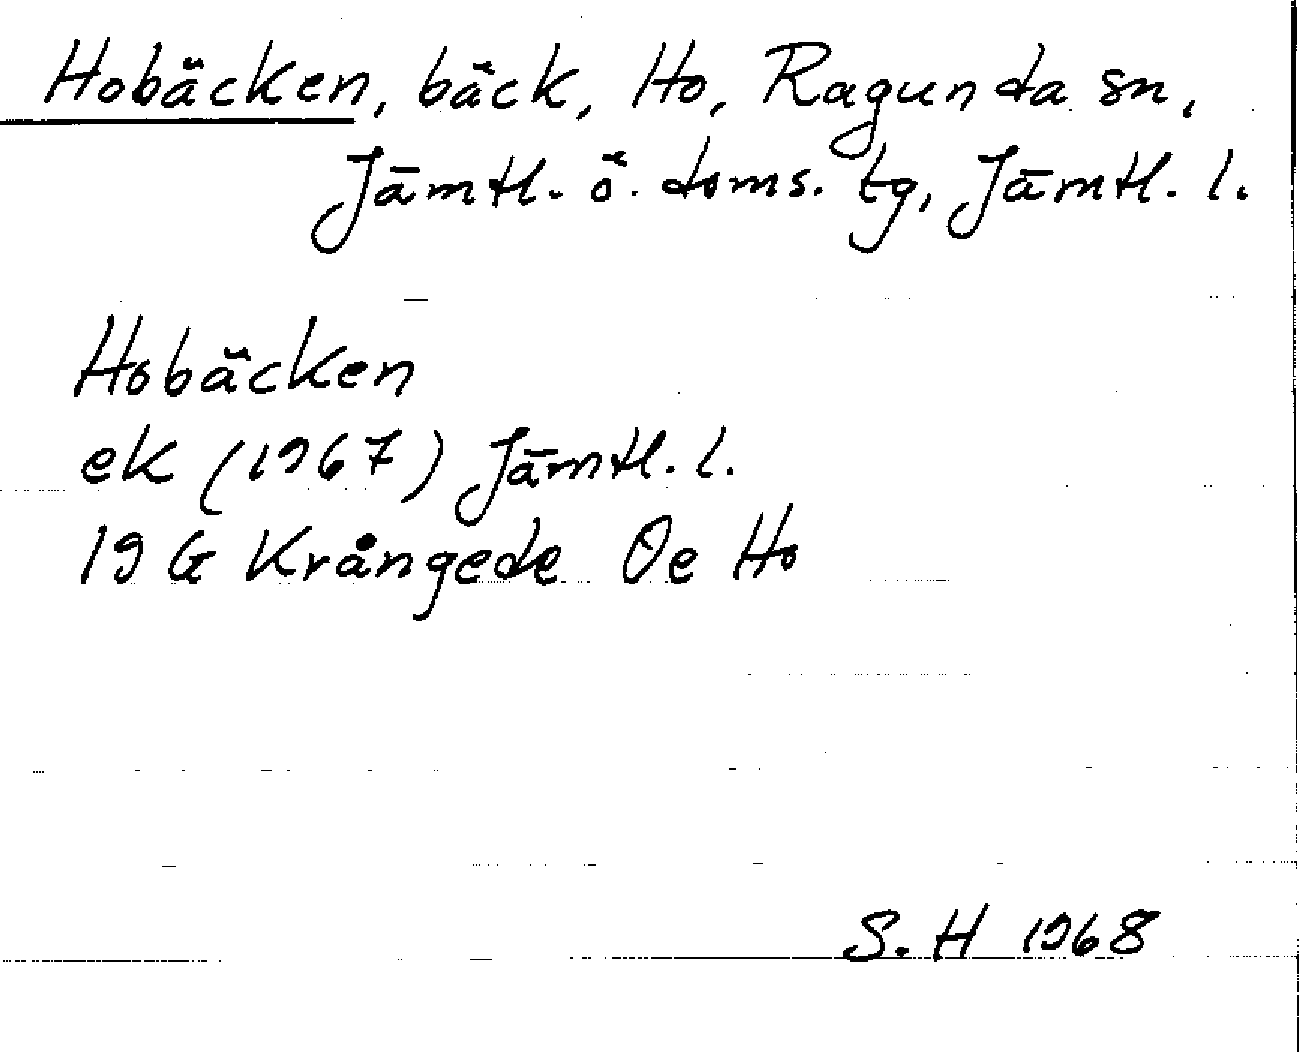 Hobäcken, bäck, Ho, Ragunda sn,
Jämtl. ö. doms. tg, Jämtl. l.
Hobäcken
ek (1967) Jämtl. l.
19 G Krångede Oe Ho
S. H 1968